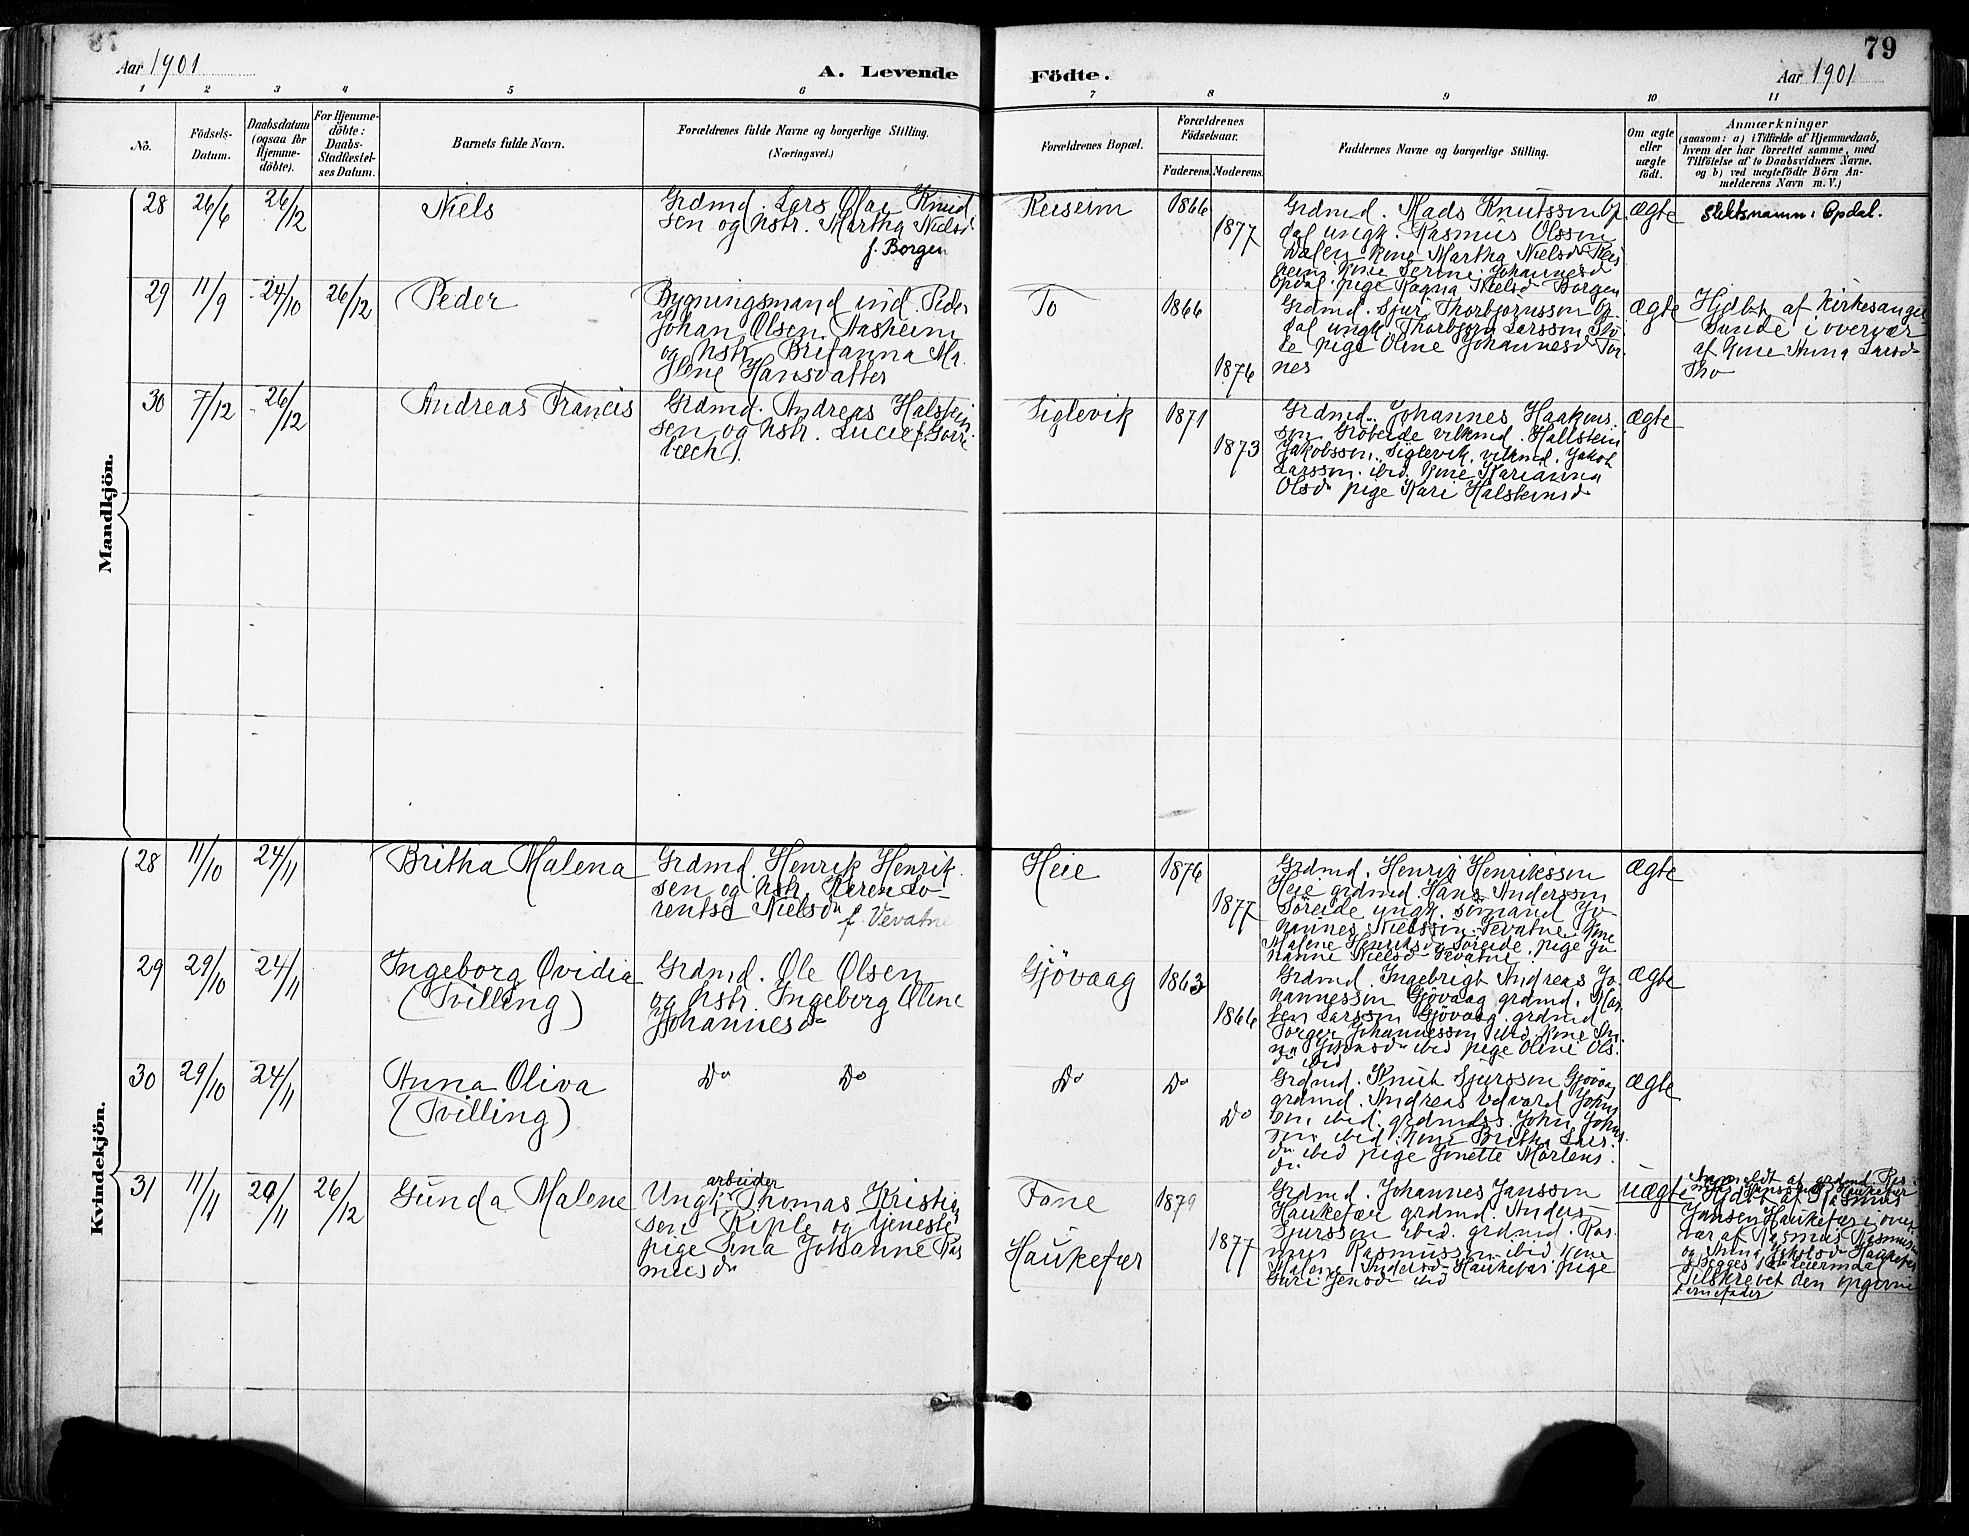 79
Aar 1901
A. Levende
Födte.
Aar 1901
1 2 3 4 5 6 7 8 9 10 11
No.
Födsels-
Datum.
Daabsdatum
(ogsaa for
Hjemme-
döbte).
For Hjemme-
döbte:
Daabs-
Stadfæstel-
ses Datum.
Barnets fulde Navn.
Forældrenes fulde Navne og borgerlige Stilling.
(Næringsvei.)
Forældrenes Bopæl.
Forældrenes
Födselsaar.
Faderens.
Moderens.
Faddernes Navne og borgerlige Stilling.
Om ægte
eller
uægte
födt.
Anmærkninger
(saasom: a) i Tilfælde af Hjemmedaab,
hvem der har forrettet samme, med
Tilföielse af to Daabsvidners Navne,
og b) ved uægtefödte Börn An-
melderens Navn m. V.)
Mandkjön.
28
26/6
26/12
Niels
Grdmd. Lars Olai Knud
sen og hstr. Martha Nielsd
f. Borgen
Reiseim
1866
1877
Grdmd. Mads Knutsson Op-
dal ungk. Rasmus Olsson
Dalen kone Martha Nielsd Reis
heim kone Serine Johannesd
Opdal. pige Ragna Nielsd Borgen
ægte
Slektsnamn: Opdal.
29
11/9
24/10
26/12
Peder
Bygningsmand ind. Peder
Johan Olsen Aasheim
og hstr. Britanna Ma
lene Hansdatter
To
1866
1876
Grdmd. Sjur Thorbjørnsson Op-
dal ungk. Thorbjørn Larsson
pige Oline Johannesd Tor
nes
ægte
Hjdbt. af Kirkesanger
Sunde i overvær
af Kone Anna Larsd
Tho
30
7/12
26/12
Andreas Francis
Grdmd. Andreas Halstein
sen og hstr. Lucie f.
Siglevik
1871
1873
Grdmd. Johannes Haakons
son Grøteide vilkmd. Hallstein
Jakobsson. Siglevik. vilkmd. Jakob
Larsson. ibid. kone Marianna
Olsd pige Kari Halsteinsd
ægte
Kvindekjön.
28
11/10
24/11
Britha Malena
Grdmd. Henrik Henrik
sen og hstr. Karen Lo-
rentse Nielsd
f. Vevatne
Heie
1876
1877
Grdmd. Henrik Henriksson
Heie grdmd. Hans Andersson
Söreide ungk. sömand Jo
hannes Nielsson Vevatne kone
Malene Henriksd Söreide. pige Jo
hanne Nielsd Vevatne
ægte
29
29/10
24/11
Ingeborg Ovidia
(Tvilling)
Grdmd. Ole Olsen
og hstr. Ingeborg Oline
Johannesd
Gjövaag
1863
1866
Grdmd. Ingebrigt Andreas Jo
hannesson Gjövaag grdmd. Mor
ten Larsson Gjövaag. grdmd.
Torger Johannesson ibid. kone
ibid pige Oline Ols
d ibid
ægte
30
29/10
24/11
Anna Oliva
(Tvilling)
Do Do
Do
Do
Do
Grdmd. Knut Sjursson Gjövaag
grdmd. Andreas Edvard Johns
son ibid. grdmdss. John Johns
son ibid kone Britha Lars
d ibid pige Jonette Mortens
d
ægte
31
11/11
29/11
26/12
Gunda Malene
arbeider
Ungk. Thomas Kristian
sen Riple og tjeneste
pige Lina Johanne Ras
musd
Tone
Haukefær
1879
1877
Grdmd. Johannes Jansson
Haukefær grdmd Anders
Sjursson ibid. grdmd. Ras
mus Rasmusson ibid kone
Malene Andersd Haukefær pige
Guri Jensd ibid
uægte
Anmeldt af grdmd Ras
mus Jansson Haukefær
Hjdbt af Rasmus
Jansen Haukefær i over
vær af Rasmus Rasmussen
og Anna Jakobsd Haukefær
Begges 1ste leiermaal
Tilskrevet den opgivne
Barnefader